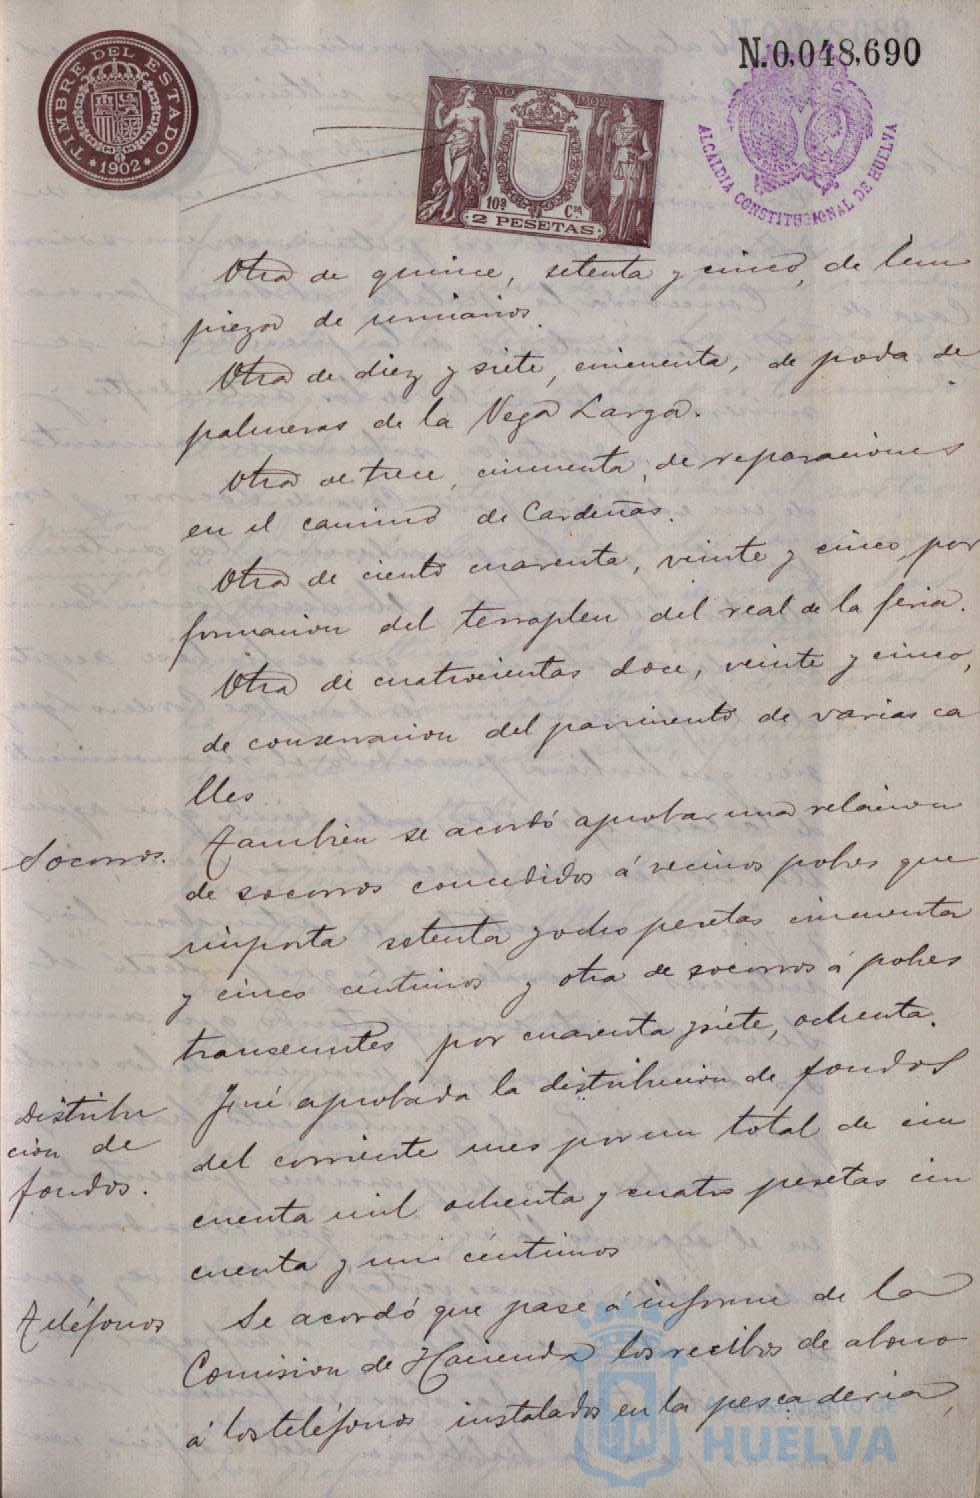 N.0,048,690
TIMBRE DEL ESTADO
* 1902 *
AÑO 1902
10ª Cª
2 PESETAS
ALCALDIA CONSTITUCIONAL DE HUELVA
Otra de quince, setenta y cinco, de lim
pieza de urinarios.
Otra de diez y siete, cincuenta, de poda de
palmeras de la Vega Larga.
Otra de trece, cincuenta, de reparaciones
en el camino de Cardeñas.
Otra de ciento cuarenta, veinte y cinco por
formacion del terraplen del real de la feria.
Otra de cuatrocientas doce, veinte y cinco,
de conservacion del pavimento de varias ca
lles.
Socorros.
Tambien se acordó aprobar una relacion
de socorros concedidos á vecinos pobres que
importa setenta y ocho pesetas cincuenta
y cinco céntimos y otra de socorros á pobres
transeuntes por cuarenta y siete, ochenta.
Distribu
cion de
fondos.
Fué aprobada la distribucion de fondos
del corriente mes por un total de cin
cuenta mil ochenta y cuatro pesetas cin
cuenta y un céntimos
Teléfonos
Se acordó que pase á informe de la
Comision de Hacienda los recibos de abono
á los teléfonos instalados en la pescaderia,
Ayuntamiento de
HUELVA